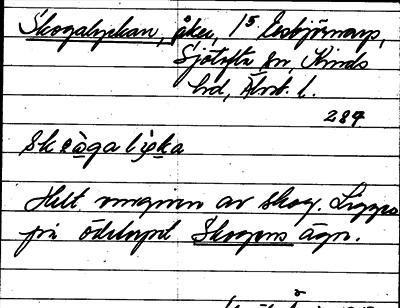 Skogalyckan, åker, 1/5 Esbjörnarp,
Sjötofta sn Kinds
hd, Älvsb. l.
284
skωgaly̨ka
Helt omgiven av skog. Ligger
på ödetorpet Skogens ägor.